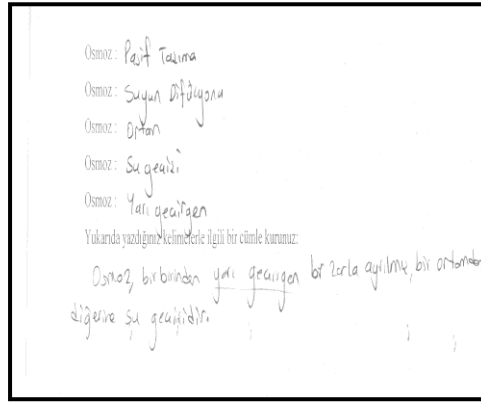 Osmoz : Pasif Taşıma
Osmoz : Suyun Difüzyonu
Osmoz : Ortam
Osmoz : Su geçişi
Osmoz : Yarı geçirgen
Yukarıda yazdığınız kelimelerle ilgili bir cümle kurunuz:
Osmoz, birbirinden yarı geçirgen bir zarla ayrılmış, bir ortamdan
diğerine su geçişidir.